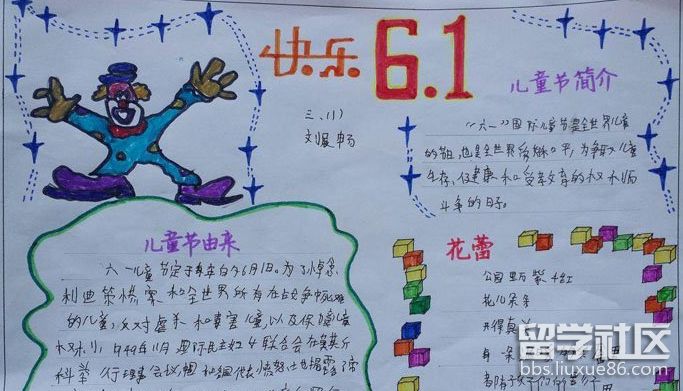 快乐 6.1
三.(1)
儿童节简介
“六一”国际儿童节是全世界儿童
的节日,也是全世界
生存、健康和受教育的权利而
斗争的日子。
儿童节由来
六一儿童节定于每年的6月1日。为了悼念
利迪策惨案和全世界所有在战争中死难
的儿童,反对虐杀和毒害儿童,以及保障儿童
权利,1949年11月国际民主妇女联合会在莫斯
科举行理事会议,
花蕾
公园里万紫千红
花儿朵朵
开得真
留学社区
bbs.liuxue86.com